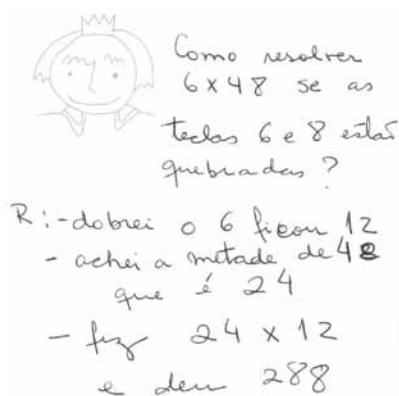 Como resolver
6 x 48 se as
teclas 6 e 8 estão
quebradas?
R:-dobrei o 6 ficou 12
- achei a metade de 48
que é 24
- fiz 24 x 12
e deu 288